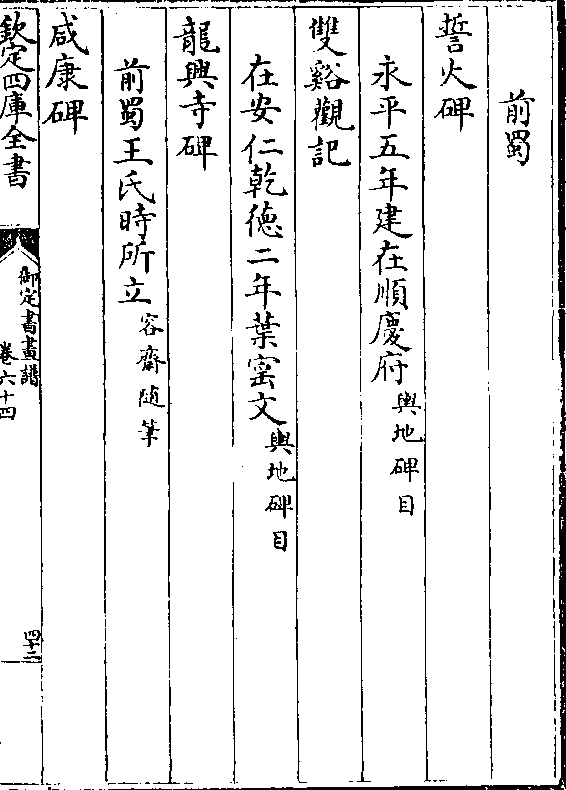 前蜀
誓火碑
永平五年建在順慶府輿地碑目
雙谿觀記
在安仁乾德二年葉宻文輿地碑目
龍興寺碑
前蜀王氏時所立容齋隨筆
咸康碑
欽定四庫全書
御定書畫譜
卷六十四
四十二